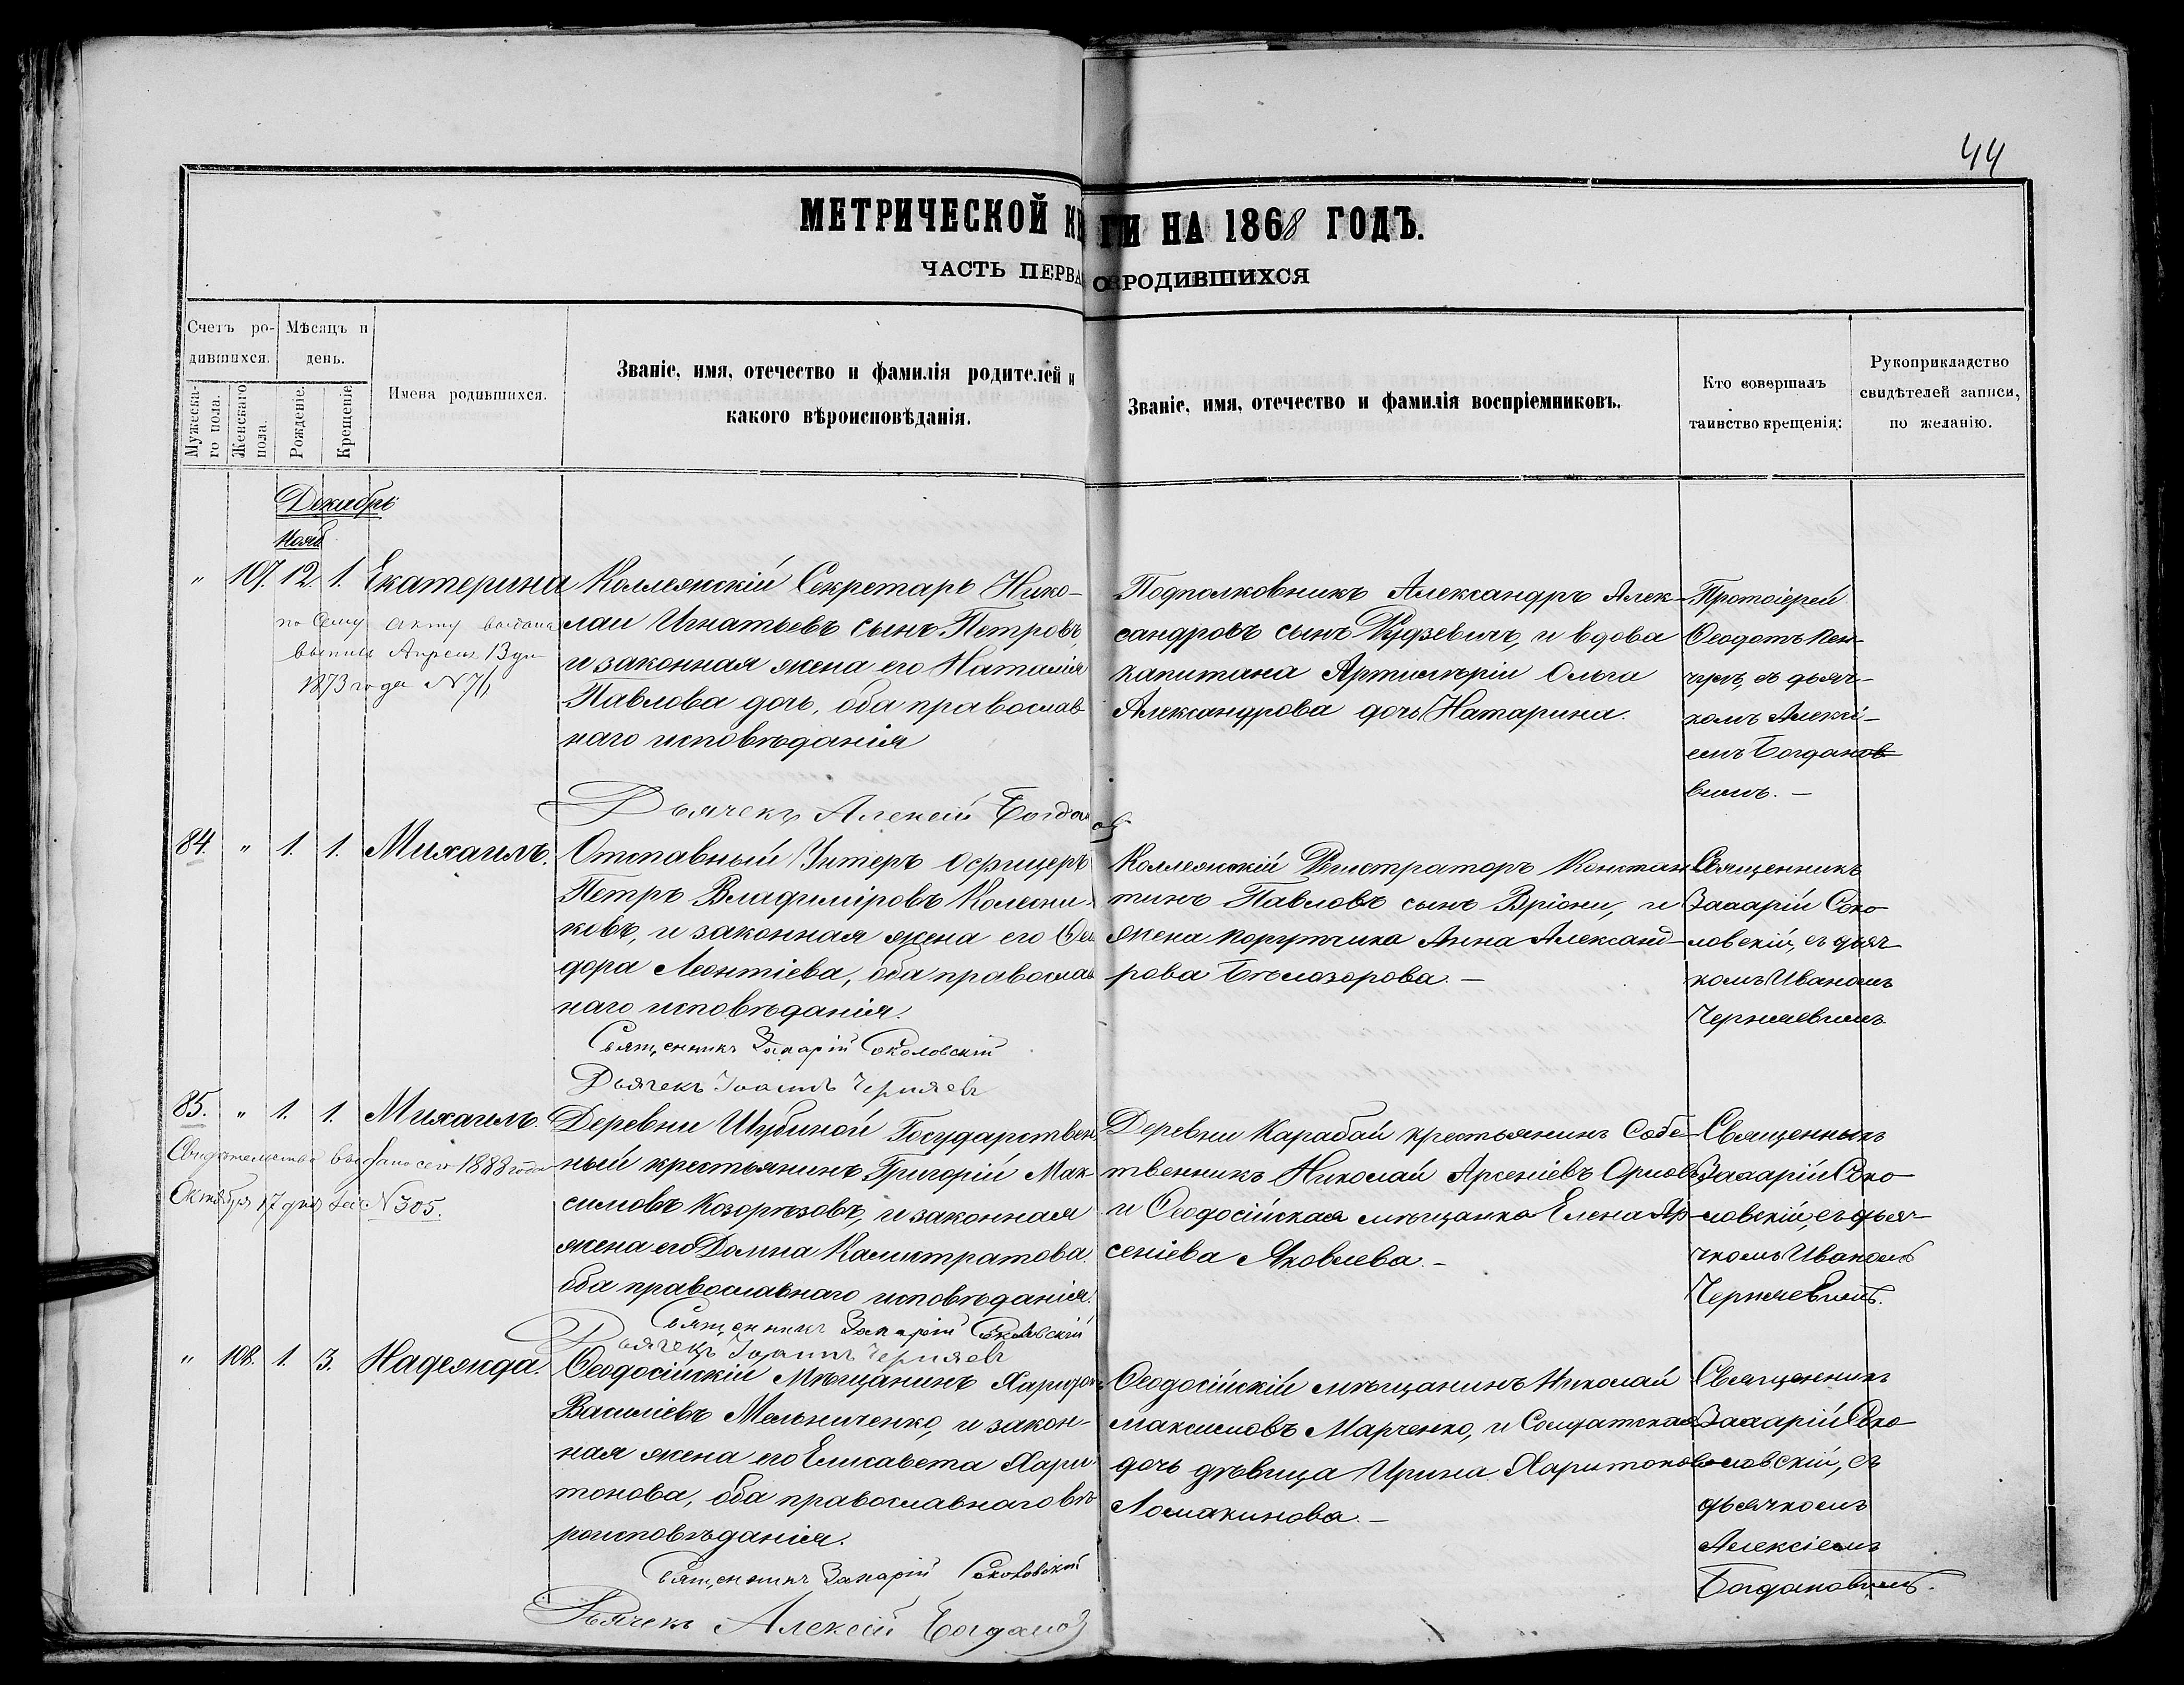 44
МЕТРИЧЕСКОЙ КН ГИ НА 1868 ГОДЪ.
ЧАСТЬ ПЕРВА О РОДИВШИХСЯ
Счетъ ро-
дившихся.
Мужеска-
го пола.
Женскаго
пола.
Мѣсяцъ и
день.
Рожденіе.
Крещеніе.
Имена родившихся.
Званіе, имя, отечество и фамилія родителей и
какого вѣроисповѣданія.
Званіе, имя, отечество и фамилія воспріемниковъ.
Кто совершалъ
таинство крещенія:
Рукоприкладство
свидѣтелей записи,
по желанію.
Декабрь
Нояб
" 107. 12. 1. Екатерина
по сему акту выдана
выпись Апреля 13 дня
1873 года N 76
Коллежскій Секретарь Нико-
лай Игнатьевъ сынъ Петровъ,
и законная жена его Наталія
Павлова дочь, оба православ-
наго исповѣданія
Дьячекъ Алексѣй Богданов
Подполковникъ Александръ Алек-
сандровъ сынъ Рудзевичъ, и вдова
капитана Артилеріи Ольга
Александрова дочь Натарина.
Протоіерей
Ѳеодотъ Кен-
чуръ, съ дьяч-
комъ Алексі-
емъ Богданов
вымъ. —
84. " 1. 1. Михаилъ.
Отставный Унтеръ Офицеръ
Петръ Владиміровъ Колесни-
ковъ, и законная жена его Ѳео
дора Леонтіева, оба православ
наго исповѣданія.
Священникъ Захарій Соколовскій
Дьячекъ Іоаннъ Черняевъ
Коллежскій Регистраторъ Констан
тинъ Павловъ сынъ Вріони, и
жена поручика Анна Александ-
рова Бѣлозорова. —
Священникъ
Захарій Соко
ловскій, съ дьяч
комъ Иваномъ
Черняевымъ
85. " 1. 1. Михаилъ.
Свидѣтельство выдано сего 1888 года
Октября 17 дня за N 305.
Деревни Шубиной Государствен
ный крестьянинъ Григорій Мак-
симовъ Козорѣзовъ, и законная
жена его Домна Калистратова.
оба православнаго исповѣданія.
Священникъ Захарій Соколовскій
Дьячекъ Іоаннъ Черняевъ
Деревни Карабай крестьянинъ Собс-
твенникъ Николай Арсеніевъ Орловъ,
и Ѳеодосійская мѣщанка Елена Ар-
сеніева Яковлева. —
Священникъ
Захарій Соко
ловскій, съ дья-
чкомъ Иваномъ
Черняевымъ.
" 108. 1. 3. Надежда.
Ѳеодосійскій Мѣщанинъ Харитон
Василіевъ Мельниченко, и закон-
ная жена его Елисавета Хари
тонова, оба православнаго вѣ
роисповѣданія.
Священникъ Захарій Соколовскій
Дьячекъ Алексѣй Богданов
Ѳеодосійскій мѣщанинъ Николай
Максимовъ Марченко, и Солдатская
дочь дѣвица Ирина Харитонова
Ломакинова. —
Священникъ
Захарій Соко
ловскій, съ
дьячкомъ
Алексіемъ
Богдановымъ.